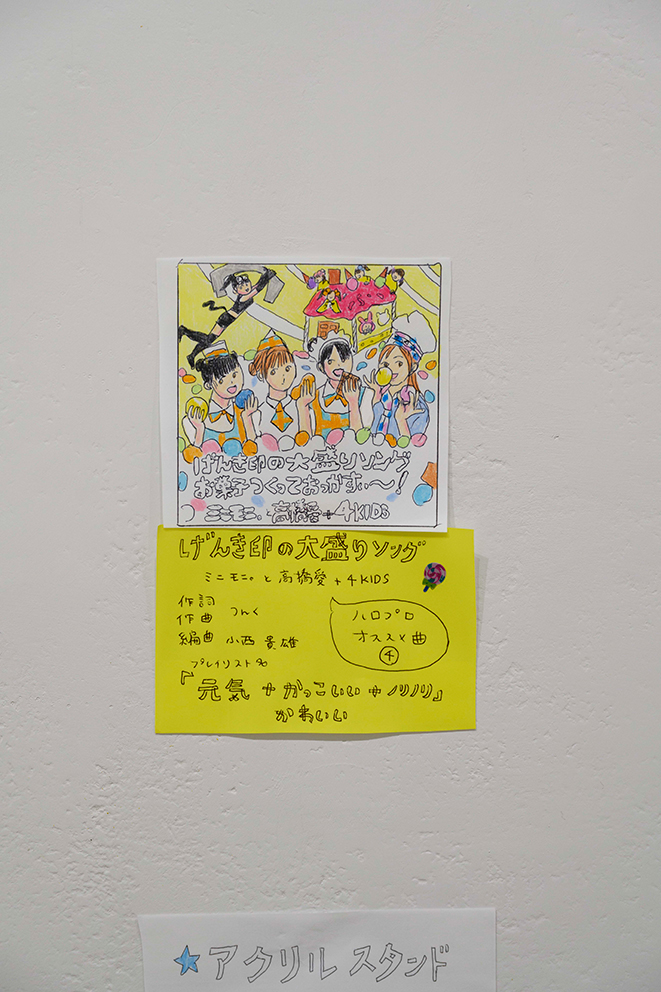 げんき印の大盛りソング
お菓子つくっておっかすぃ〜!
ミニモニ。と高橋愛+4KIDS
げんき印の大盛りソング
ミニモニ。と高橋愛+4KIDS
作詞
作曲 つんく
編曲 小西貴雄
ハロプロ
オススメ曲
④
プレイリスト%
『元気+かっこいい+ノリノリ』
かわいい
★アクリルスタンド